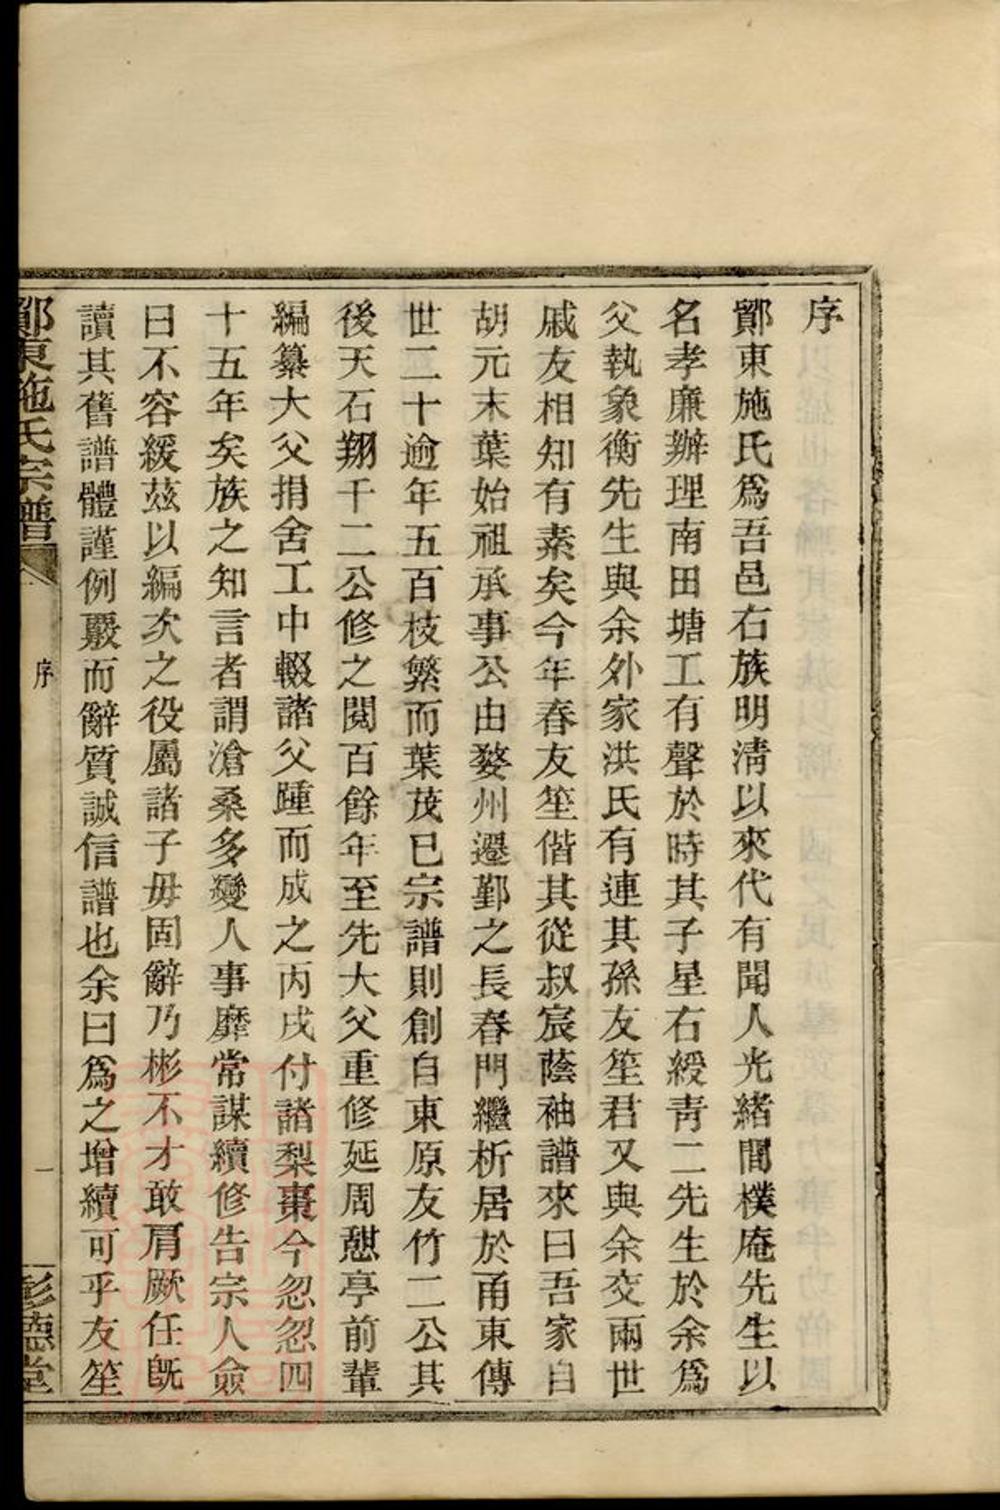 序
鄮東施氏爲吾邑右族明淸以來代有聞人光緖間樸庵先生以
名孝廉辦理南田塘工有聲於時其子星右綬靑二先生於余爲
父執象衡先生與余外家洪氏有連其孫友笙君又與余交兩世
戚友相知有素矣今年春友笙偕其從叔宸蔭袖譜來曰吾家自
胡元末葉始祖承事公由婺州遷鄞之長春門繼析居於甬東傳
世二十逾年五百枝繁而葉茂已宗譜則創自東原友竹二公其
後天石翔千二公修之閱百餘年至先大父重修延周憇亭前輩
編纂大父捐舍工中輟諸父踵而成之丙戌付諸梨棗今忽忽四
十五年矣族之知言者謂滄桑多變人事靡常謀續修告宗人僉
曰不容緩茲以編次之役屬諸子毋固辭乃彬不才敢肩厥任旣
讀其舊譜體謹例嚴而辭質誠信譜也余曰爲之增續可乎友笙
鄮東施氏宗譜
序
一
彰德堂